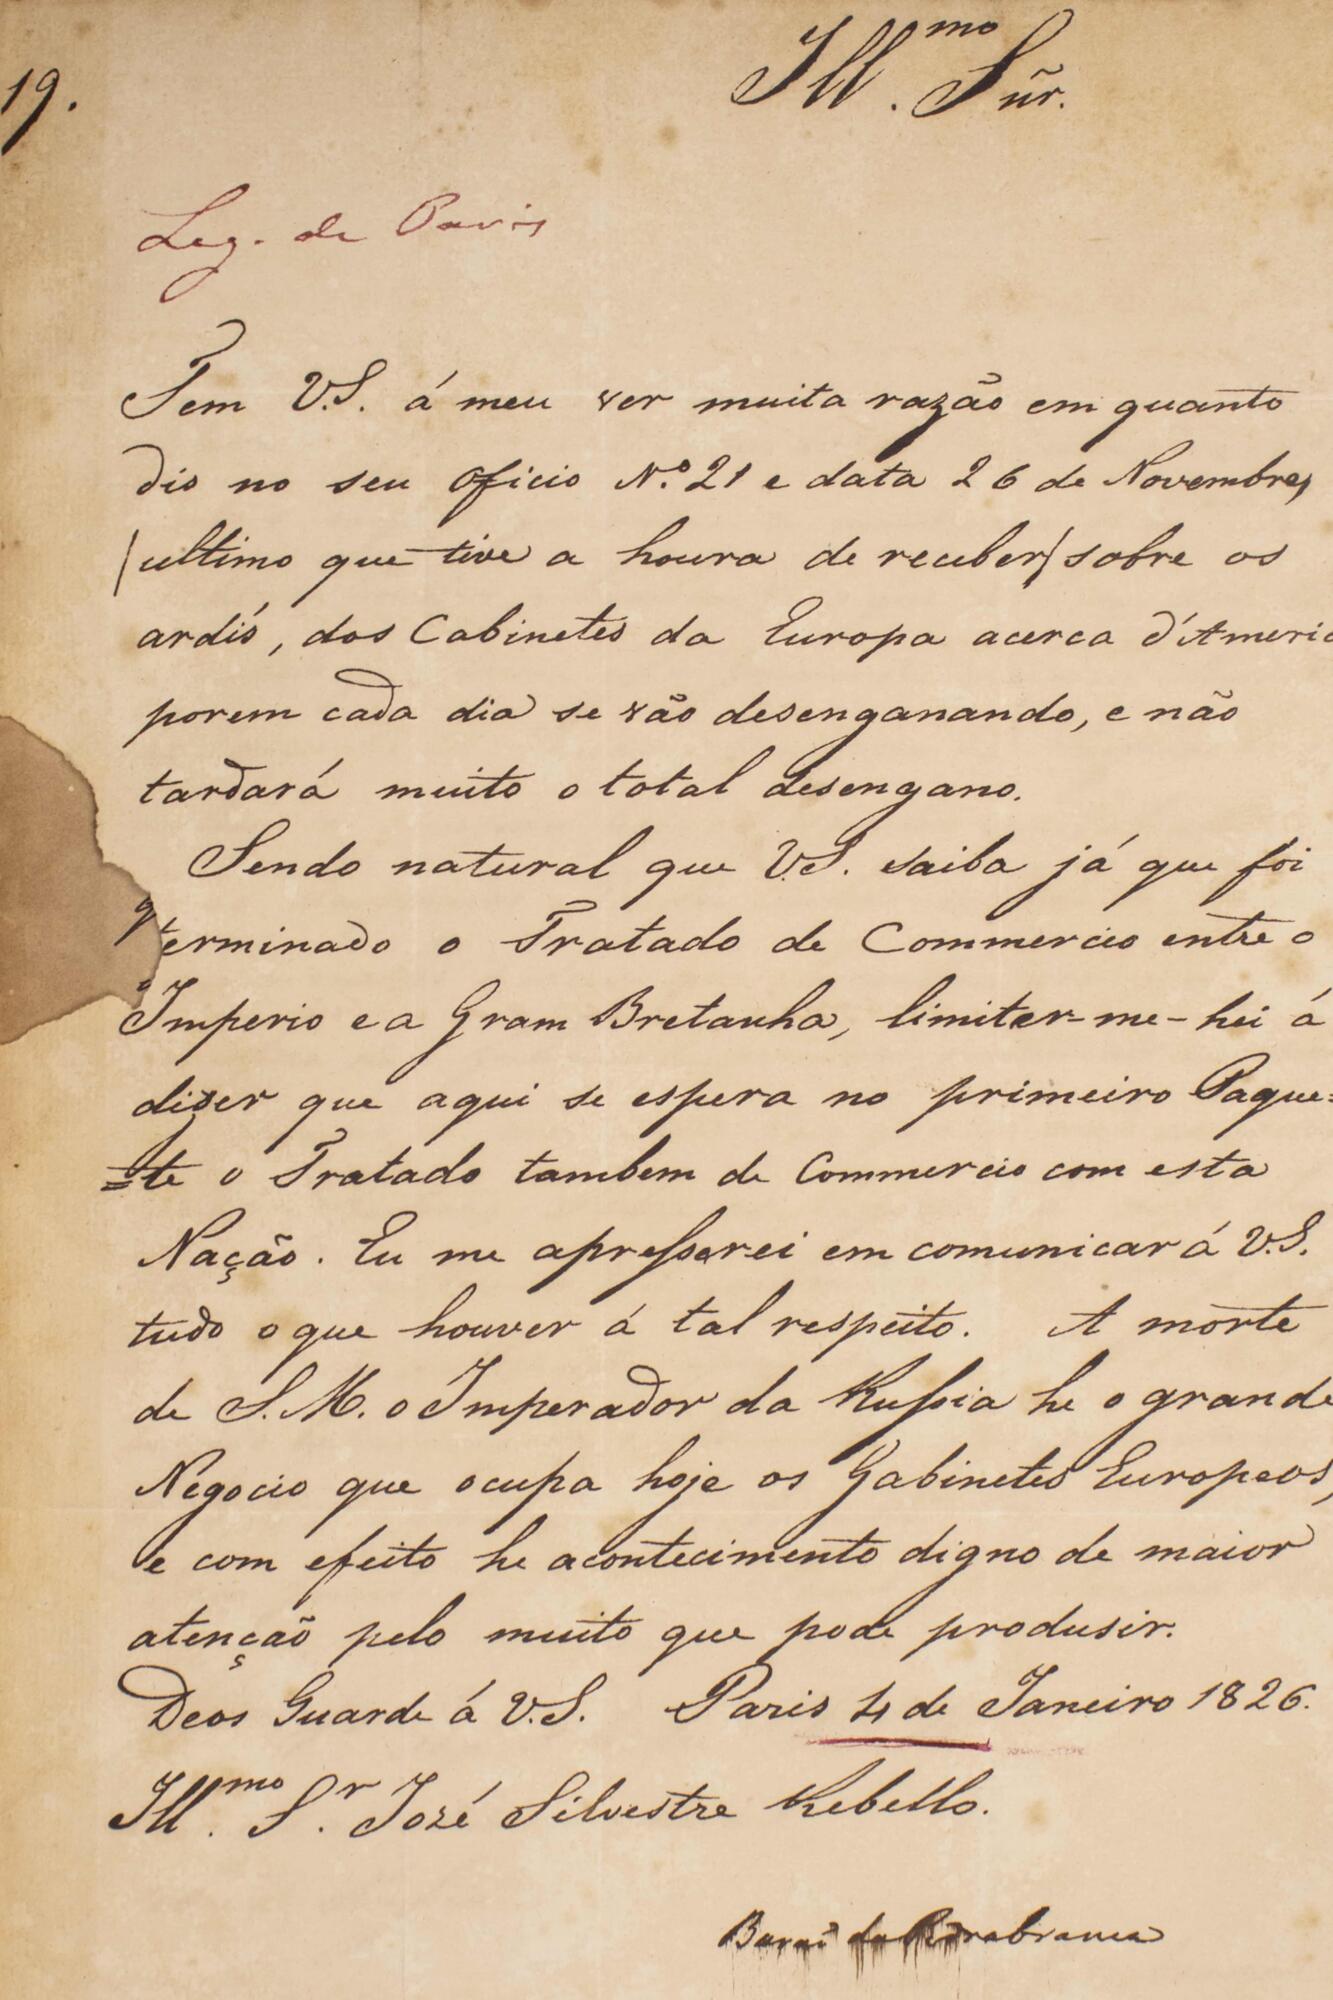 19.
Ill.mo Sñr.
Leg. de Paris
Tem V.S. á meu ver muita razão em quanto
dis no seu Oficio N.o 21 e data 26 de Novembre,
(ultimo que tive a honra de receber) sobre os
ardís, dos Cabinetes da Europa acerca d'Americ
porem cada dia se vão desenganando, e não
tardará muito o total desengano.
Sendo natural que V.S. saiba já que foi
terminado o Tratado de Commercio entre o
Imperio e a Gram Bretanha, limiter-me-hei á
dizer que aqui se espera no primeiro Paque=
=te o Tratado tambem de Commercio com esta
Nação. Eu me apresserei em comunicar á V.S.
tudo o que houver á tal respeito. A morte
de S.M. o Imperador da Russia he o grande
Negocio que ocupa hoje os Gabinetes Europeos,
e com efeito he acontecimento digno de maior
atenção pelo muito que pode produsir.
Deos Guarde á V.S. Paris 4 de Janeiro 1826.
Ill.mo S.r José Silvestre Rebello.
Barão da Pedrabranca